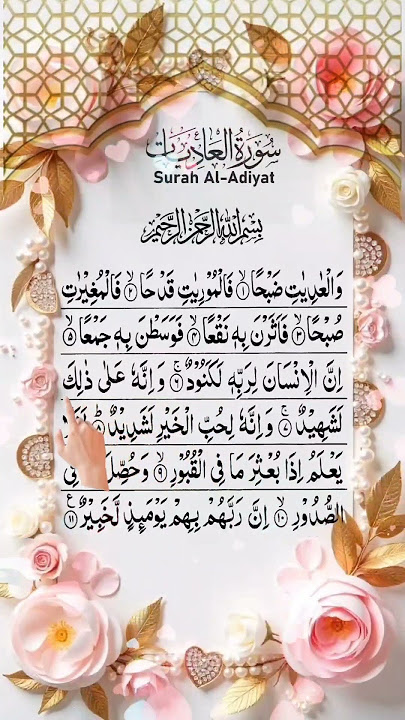 سُورَةُ العَادِيَات
Surah Al-Adiyat
بِسْمِ اللهِ الرَّحْمٰنِ الرَّحِيْمِ
وَالْعٰدِيٰتِ ضَبْحًا ۙ۝۱ فَالْمُوْرِيٰتِ قَدْحًا ۙ۝۲ فَالْمُغِيْرٰتِ
صُبْحًا ۙ۝۳ فَاَثَرْنَ بِهٖ نَقْعًا ۙ۝۴ فَوَسَطْنَ بِهٖ جَمْعًا ۙ۝۵
اِنَّ الْاِنْسَانَ لِرَبِّهٖ لَكَنُوْدٌ ۚ۝۶ وَاِنَّهٗ عَلٰى ذٰلِكَ
لَشَهِيْدٌ ۚ۝۷ وَاِنَّهٗ لِحُبِّ الْخَيْرِ لَشَدِيْدٌ ؕ۝۸
يَعْلَمُ اِذَا بُعْثِرَ مَا فِى الْقُبُوْرِ ۙ۝۹ وَحُصِّلَ
الصُّدُوْرِ ۙ۝۱۰ اِنَّ رَبَّهُمْ بِهِمْ يَوْمَىِٕذٍ لَّخَبِيْرٌ ۝۱۱